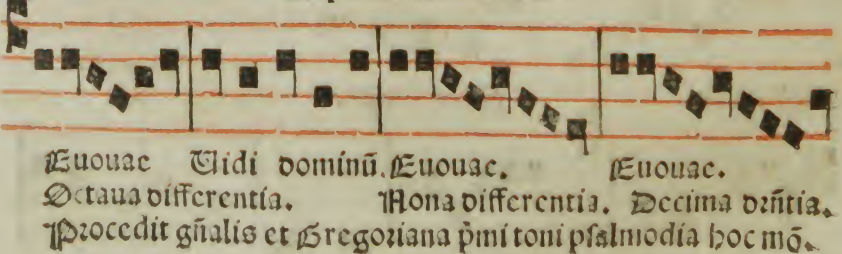 Euouae Uidi dominū. Euouae. Euouae.
Octaua differentia. Nona differentia. Decima drñtia.
Procedit gñalis et Gregoriana p̄mi toni psalmodia hoc mō.